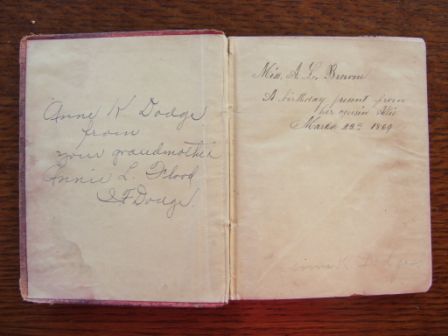 Anne K Dodge
from
your grandmother
Annie L. Flood
S F Dodge
Miss A. L. Brown
A birthday present from
her cousin
March 23rd 1869
Anne K. Dodge